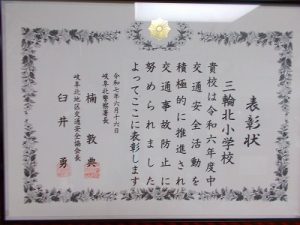 表彰状
三輪北小学校
貴校は令和六年度中
交通安全活動を
積極的に推進され
交通事故防止に
努められました
よってここに表彰します
令和七年六月十六日
岐阜北警察署長
楠敦典
岐阜北地区交通安全協会長
臼井勇